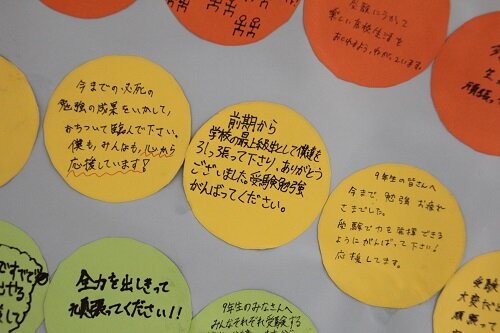 受験にうかって
楽しい高校生活を
今までの必死の
勉強の成果をいかして、
おちついて臨んで下さい。
僕も、みんなも、心から
応援しています!
前期から
学校の最上級生として僕達を
引っ張って下さり、ありがとう
ございました。受験勉強
がんばってください。
9年生の皆さんへ
今まで、勉強 お疲れ
さまでした。
受験で力を発揮できる
ようにがんばって下さい!
応援してます。
全力を出しきって
頑張ってください!!
9年生のみなさんへ
みんなそれぞれ受験する
受験
頑張